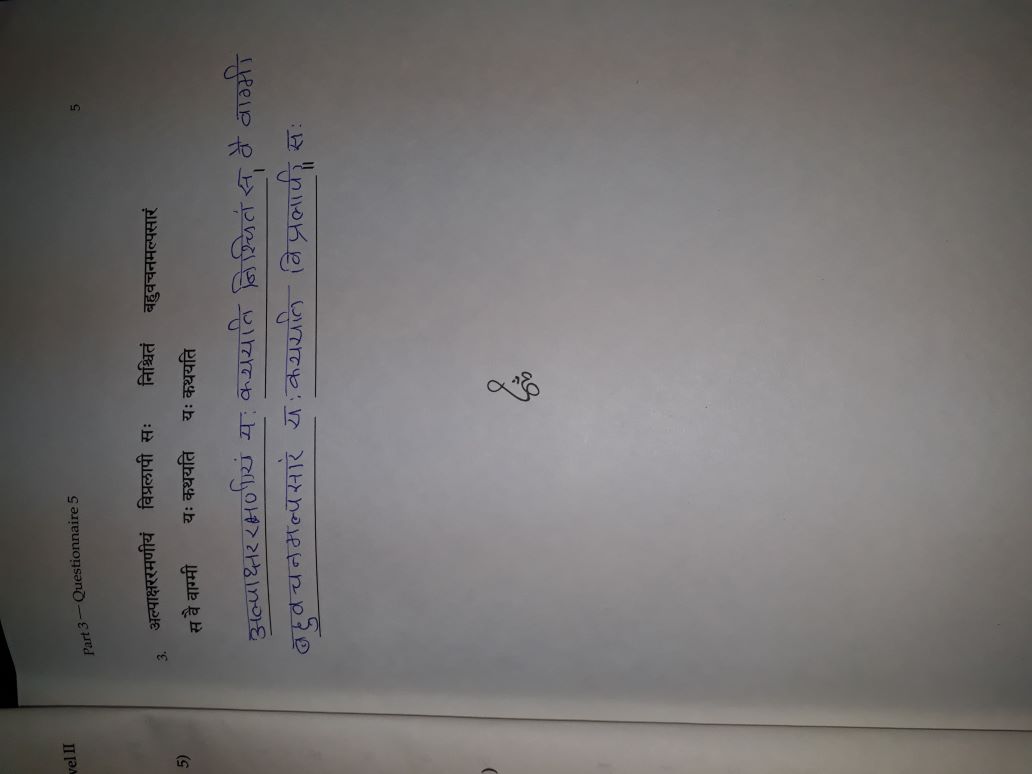 vel II
Part 3 — Questionnaire 5 5
5)
3. अल्पाक्षररमणीयं विप्रलापी सः निश्चितं बहुवचनमल्पसारं
स वै वाग्मी यः कथयति यः कथयति
अल्पाक्षररमणीयं यः कथयति निश्चितं स । वै वाग्मी
बहुवचनमल्पसारं यः कथयति विप्रलापी ॥ सः
)
ॐ